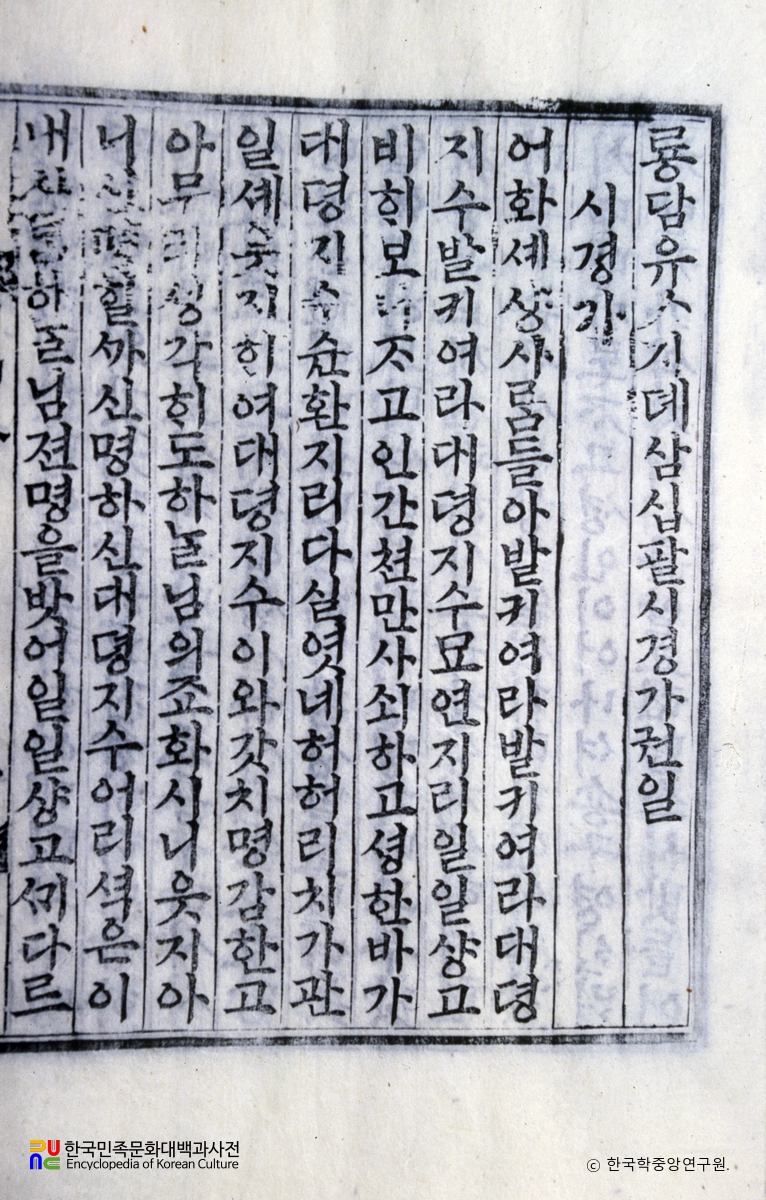 룡담유ᄉ지뎨삼십팔시경가권일
시경가
어화셰샹사ᄅᆞᆷ들아발키여라발키여라대뎡
지수발키여라대뎡지수묘연지리일일샹고
비ᄒᆡ보 ᄌᆞ고인간쳔만사쇠하고셩한바가
대뎡지수슌환지리다실엿네허허리치가관
일셰 지ᄒᆡ여대뎡지수이와갓치명감한고
아무리ᄉᆡᆼ각ᄒᆡ도하ᄂᆞᆯ님의죠화시니웃지아
니 할까신명하신대뎡지수어리셕은이
내 하ᄂᆞᆯ님젼명을밧어일일샹고ᄭᆡ다르
한국민족문화대백과사전
Encyclopedia of Korean Culture
ⓒ 한국학중앙연구원.